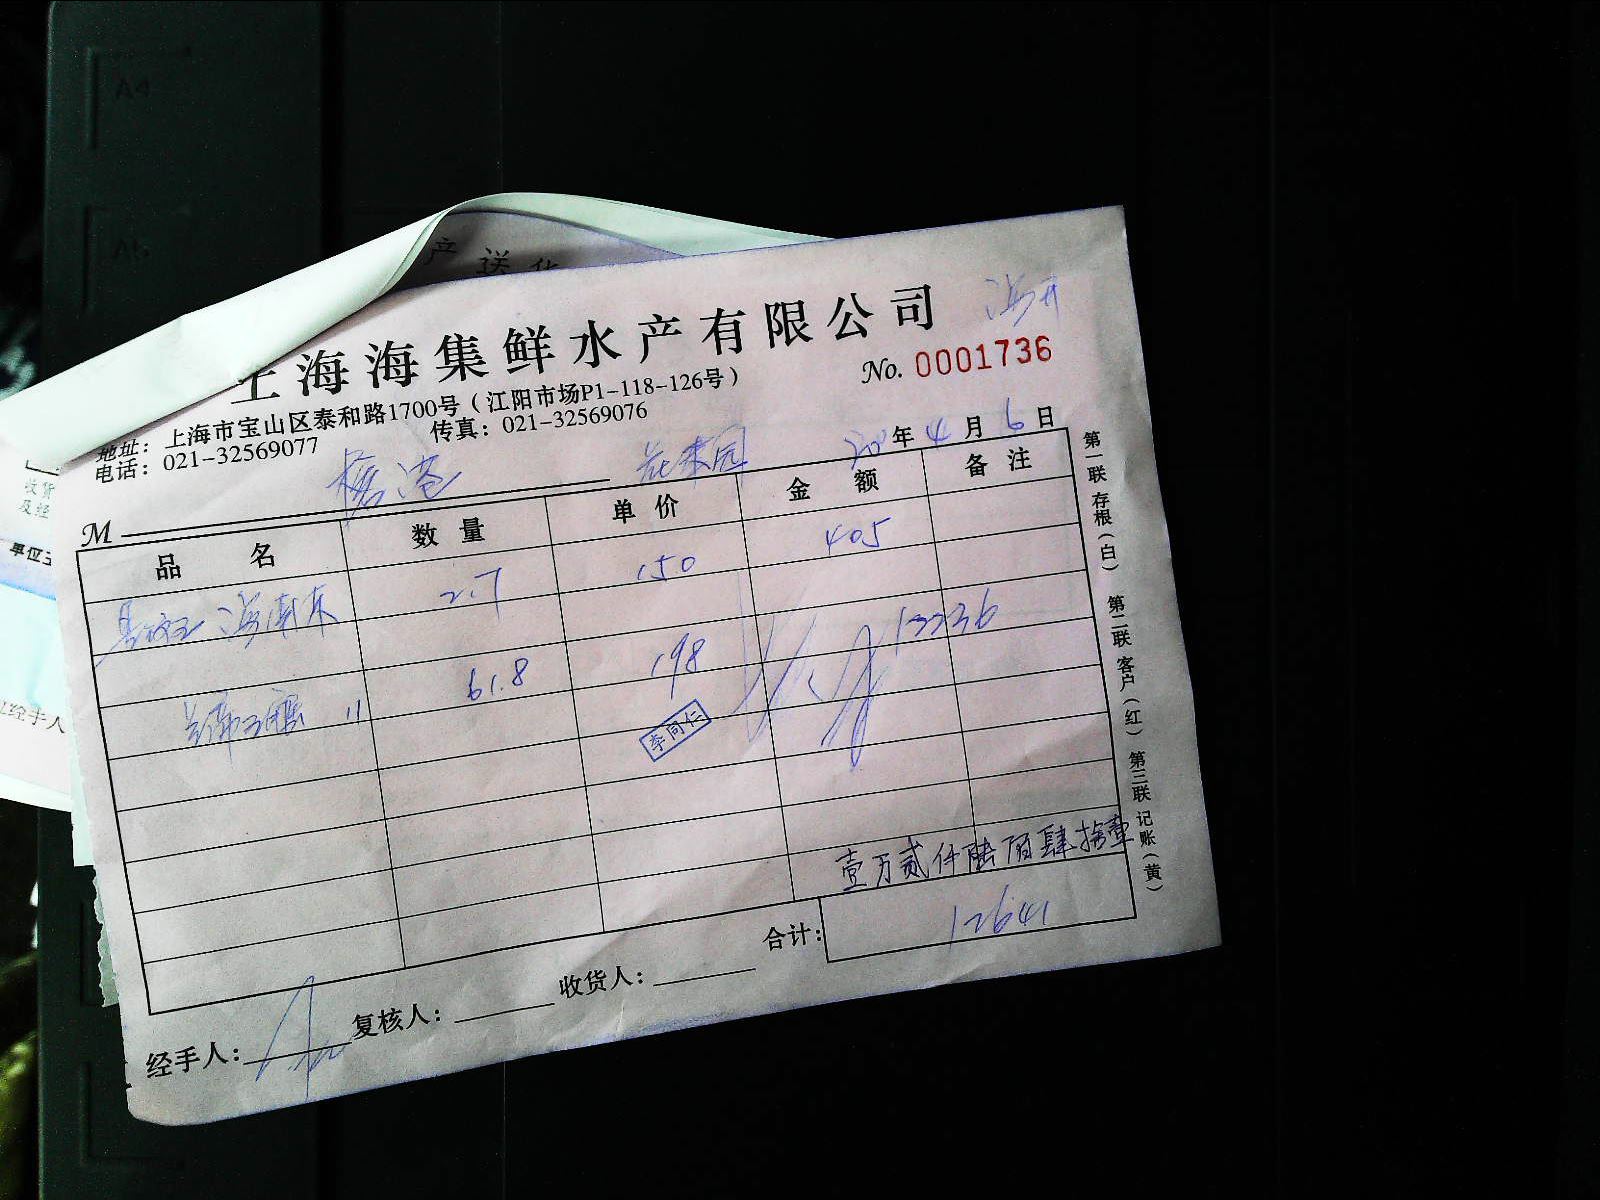 产 送 货
上海海集鲜水产有限公司
No. 0001736
地址：上海市宝山区泰和路1700号（江阳市场P1-118-126号）
电话：021-32569077 传真：021-32569076
年 4 月 6 日
M
品 名 数 量 单 价 金 额 备 注
2.7 150 405
61.8 198
李同仁
壹万贰仟陆佰肆拾壹
合计： 12641
经手人： 复核人： 收货人：
第一联 存根（白） 第二联 客户（红） 第三联 记账（黄）
收货
及经
单位
经手人
A4
A5